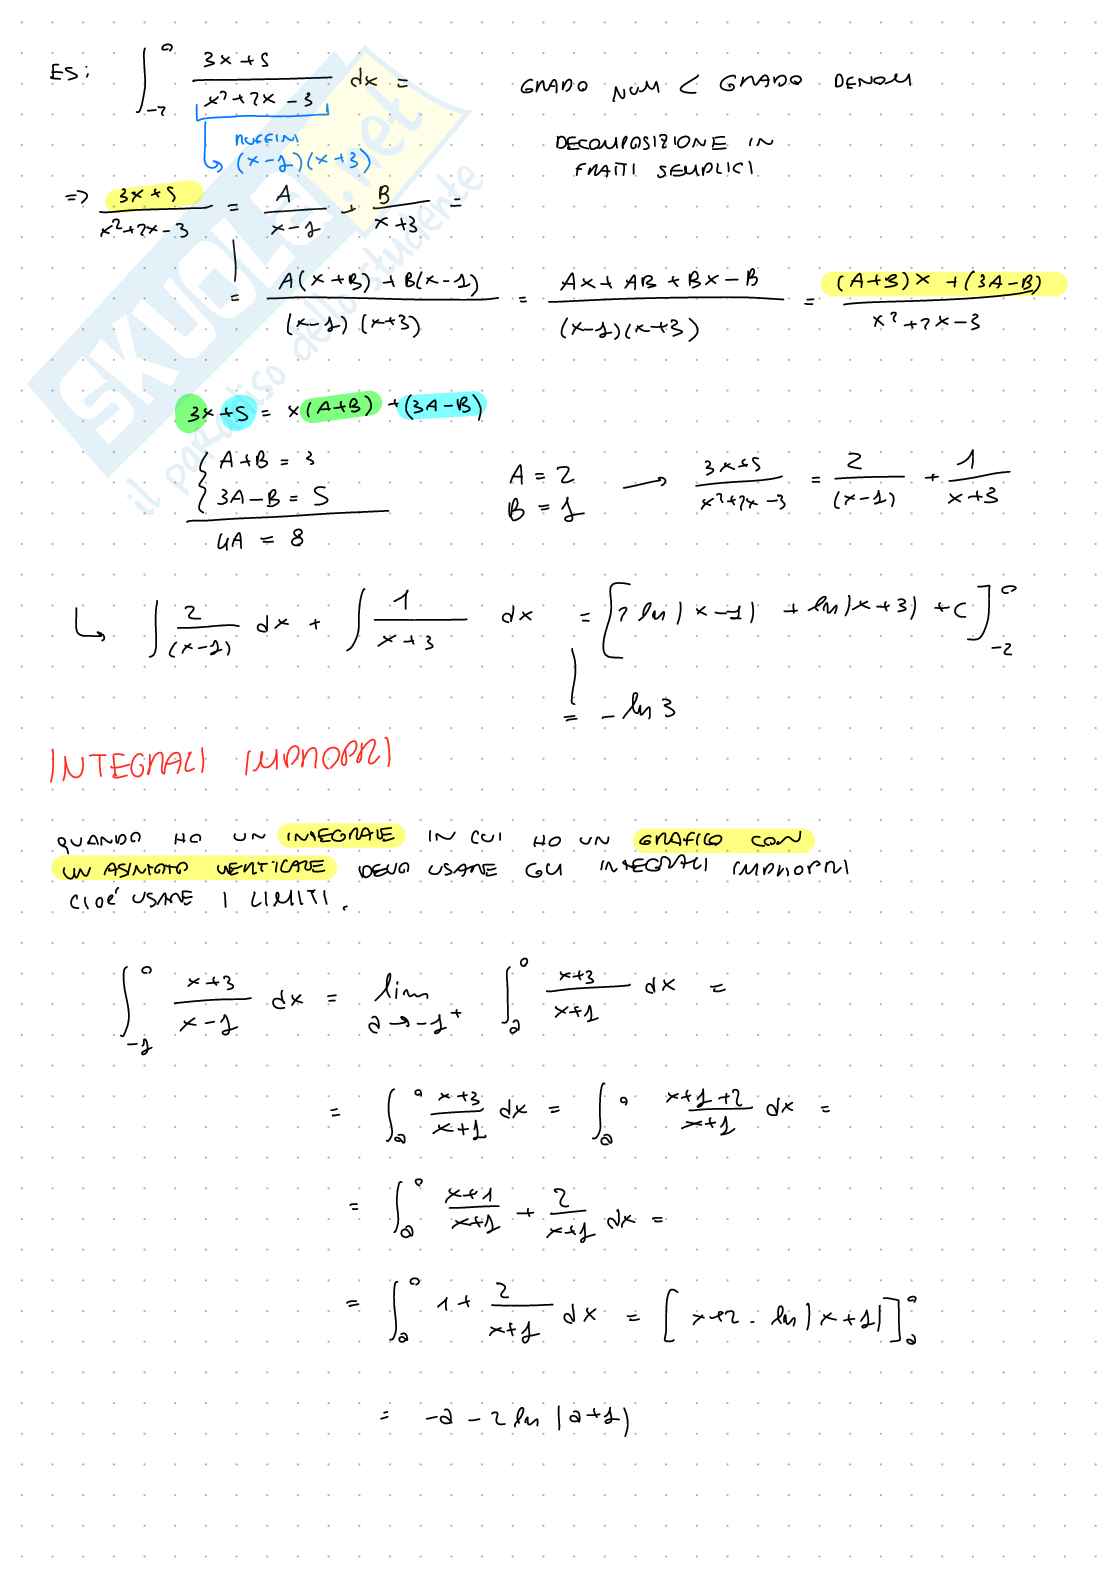 ES: ∫_{-2}^{0} (3x+5)/(x²+2x-3) dx = GRADO NUM < GRADO DENOM
RUFFINI
(x-1)(x+3)
DECOMPOSIZIONE IN
FRATTI SEMPLICI
=> (3x+5)/(x²+2x-3) = A/(x-1) + B/(x+3) =
= (A(x+B)+B(x-1))/((x-1)(x+3)) = (Ax+AB+Bx-B)/((x-1)(x+3)) = ((A+B)x+(3A-B))/(x²+2x-3)
3x+5 = x(A+B)+(3A-B)
{ A+B = 3
3A-B = 5
4A = 8
A = 2
B = 1
→ (3x+5)/(x²+2x-3) = 2/(x-1) + 1/(x+3)
↳ ∫ 2/(x-1) dx + ∫ 1/(x+3) dx = [2 ln|x-1| + ln|x+3| + C]_{-2}^{0}
= - ln 3
INTEGRALI IMPROPRI
QUANDO HO UN INTEGRALE IN CUI HO UN GRAFICO CON
UN ASINTOTO VERTICALE DEVO USARE GLI INTEGRALI IMPROPRI
CIOE' USARE I LIMITI.
∫_{-1}^{0} (x+3)/(x-1) dx = lim_{a→-1⁺} ∫_{a}^{0} (x+3)/(x+1) dx =
= ∫_{a}^{0} (x+3)/(x+1) dx = ∫_{a}^{0} (x+1+2)/(x+1) dx =
= ∫_{a}^{0} (x+1)/(x+1) + 2/(x+1) dx =
= ∫_{a}^{0} 1 + 2/(x+1) dx = [x+2·ln|x+1|]_{a}^{0}
= -a - 2 ln|a+1|
SKUOLA.net
il paradiso dello studente